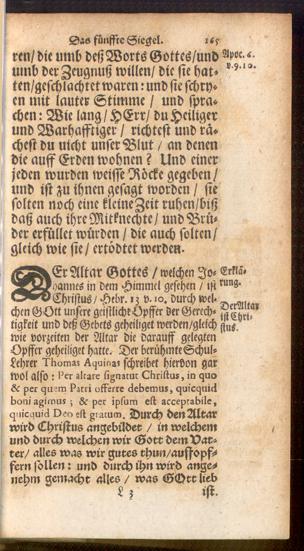 Das fünffte Siegel. 165
ren/ die umb deß Worts Gottes/und
umb der Zeugnuß willen/ die sie hat-
ten/geschlachtet waren: und sie schry-
en mit lauter Stimme / und spra-
chen: Wie lang/ HErr/ du Heiliger
und Warhafftiger / richtest und rä-
chest du nicht unser Blut / an denen
die auff Erden wohnen? Und einer
jeden wurden weisse Röcke gegeben/
und ist zu ihnen gesagt worden / sie
solten noch eine kleine Zeit ruhen/biß
daß auch ihre Mitknechte / und Brü-
der erfüllet würden / die auch solten/
gleich wie sie/ ertödtet werden.
Apoc. 6.
v. 9. 10.
DEr Altar Gottes / welchen Jo-
hannes in dem Himmel gesehen / ist
Christus/ Hebr. 13 v. 10. durch wel-
chen GOtt unsere geistliche Opffer der Gerech-
tigkeit und deß Gebets geheiliget werden/gleich
wie vorzeiten der Altar die darauff gelegten
Opffer geheiliget hatte. Der berühmte Schul-
Lehrer Thomas Aquinas schreibet hiervon gar
wol also: Per altare signatur Christus, in quo
& per quem Patri offerre debemus, quicquid
boni agimus; & per ipsum est acceptabile,
quicquid Deo est gratum. Durch den Altar
wird Christus angebildet / in welchem
und durch welchen wir Gott dem Vat-
ter/ alles was wir gutes thun/auffopf-
fern sollen: und durch ihn wird ange-
nehm gemacht alles / was GOtt lieb
Erklä-
rung.
Der Altar
ist Chri-
stus.
L 3 ist.